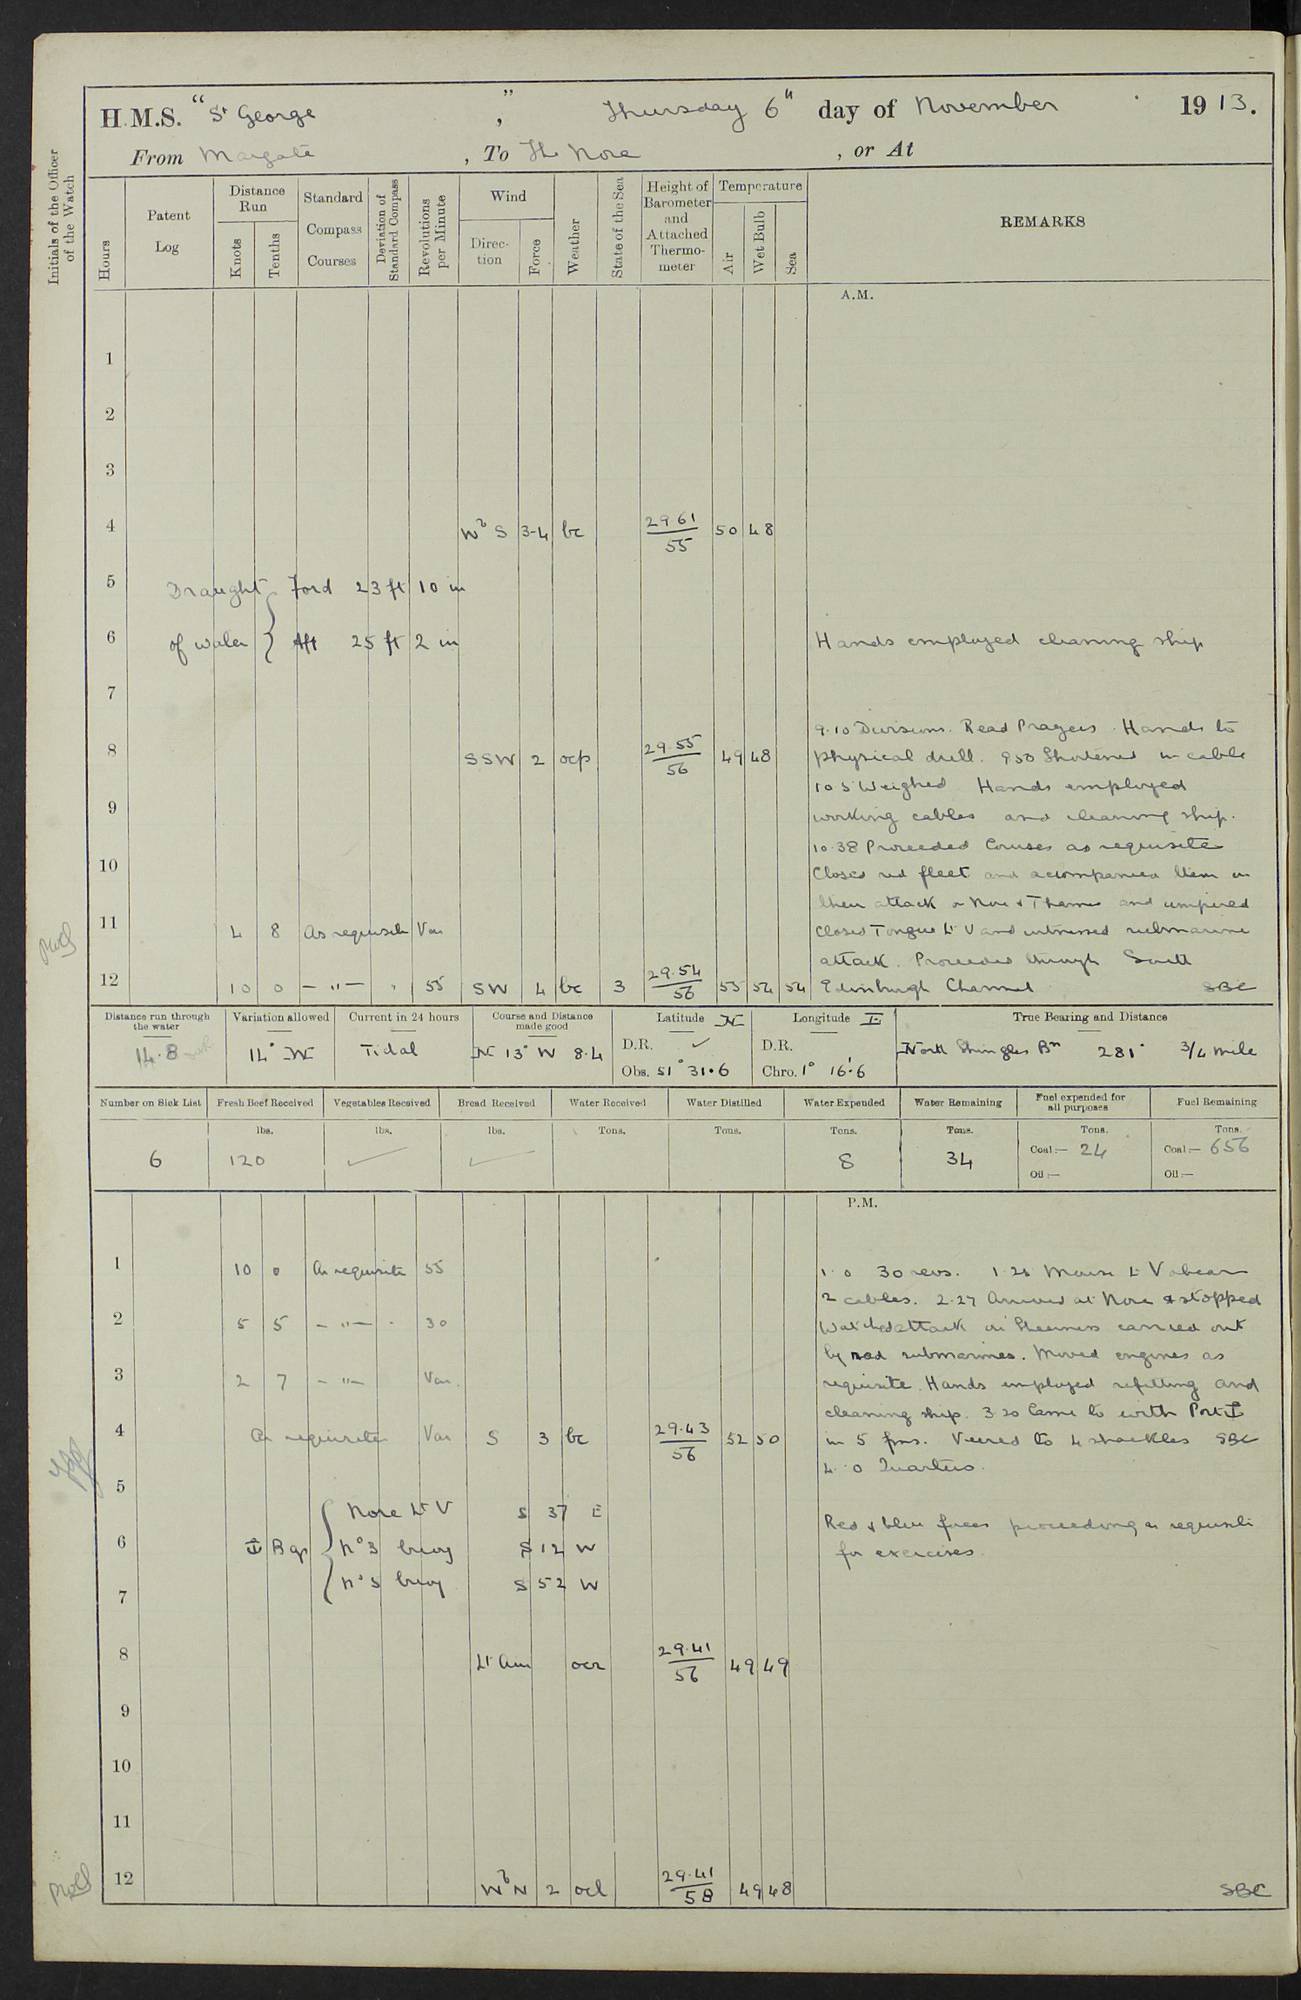 H.M.S. "St George", Thursday 6th day of November 1913.
From Margate, To The Nore, or At
Initials of the Officer of the Watch
Hours
Patent Log
Distance Run
Knots
Tenths
Standard Compass Courses
Deviation of Standard Compass
Revolutions per Minute
Wind
Direction
Force
Weather
State of the Sea
Height of Barometer and Attached Thermometer
Temperature
Air
Wet Bulb
Sea
REMARKS
A.M.
1
2
3
4 WbS 3-4 bc 29.61/55 50 48
5 Draught Ford 23 ft 10 in
6 of water Aft 25 ft 2 in
Hands employed cleaning ship
7
9.10 Divisions. Read Prayers. Hands to
8 SSW 2 ocp 29.55/56 49 48
physical drill. 9 50 Shortened in cable
10 5 Weighed Hands employed
9
working cables and cleaning ship.
10.38 Proceeded Courses as requisite
10
Closed red fleet and accompanied them in
their attack on Nore & Thames and umpired
11 4 8 As requisite Var
Closed Tongue Lt V and witnessed submarine
attack. Proceeded through South
12 10 0 - " - 55 SW 4 bc 3 29.54/56 55 54 54
Edinburgh Channel SBC
Distance run through the water
14.8
Variation allowed
14° W
Current in 24 hours
Tidal
Course and Distance made good
N 13° W 8.4
Latitude N
D.R. ✓
Obs. 51° 31.6
Longitude E
D.R.
Chro. 1° 16'.6
True Bearing and Distance
North Shingles Bn 281° 3/4 mile
Number on Sick List
6
Fresh Beef Received
lbs.
120
Vegetables Received
lbs.
✓
Bread Received
lbs.
✓
Water Received
Tons.
Water Distilled
Tons.
Water Expended
Tons.
8
Water Remaining
Tons.
34
Fuel expended for all purposes
Tons.
Coal:— 24
Oil:—
Fuel Remaining
Tons.
Coal:— 656
Oil:—
P.M.
1 10 0 As requisite 55
1.0 30 revs. 1.25 Mouse Lt V abeam
2 cables. 2.27 Arrived at Nore & stopped
2 5 5 - " - 30
Watched attack on Sheerness carried out
by red submarines. Moved engines as
3 2 7 - " - Var.
requisite. Hands employed refitting and
cleaning ship. 3 20 Came to with Port ⚓
4 As requisite Var S 3 bc 29.43/56 52 50
in 5 fms. Veered to 4 shackles SBC
4.0 Quarters.
5
Nore Lt V S 37 E
Red & blue forces proceeding as requisite
6 ⚓ Bgs No 3 buoy S 12 W
for exercises.
No 5 buoy S 52 W
7
8 Lt Airs ocr 29.41/56 49 49
9
10
11
12 WbN 2 ocl 29.41/58 49 48
SBC